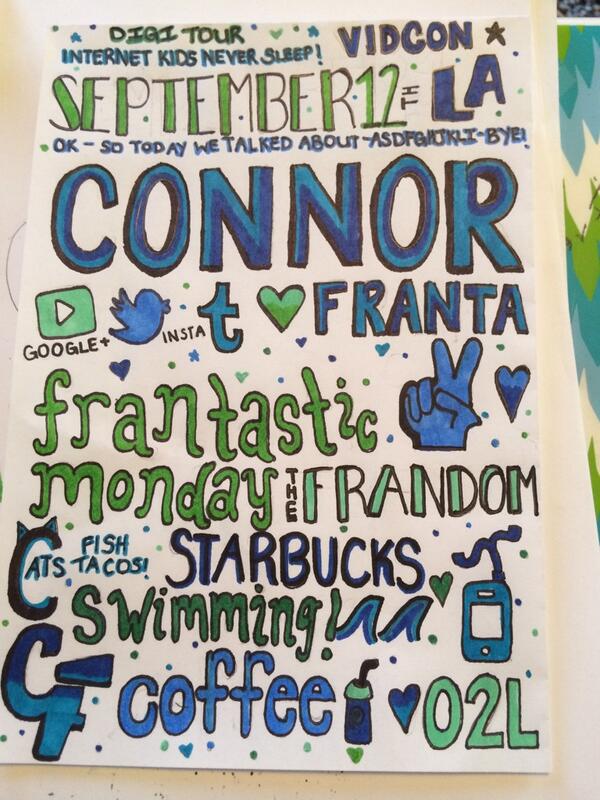 DIGI TOUR VIDCON
INTERNET KIDS NEVER SLEEP!
SEPTEMBER 12TH LA
OK - SO TODAY WE TALKED ABOUT -ASDFGHJKLI- BYE!
CONNOR
GOOGLE+ INSTA t FRANTA
frantastic
monday THE FRANDOM
CATS FISH TACOS! STARBUCKS
swimming!
CF coffee O2L